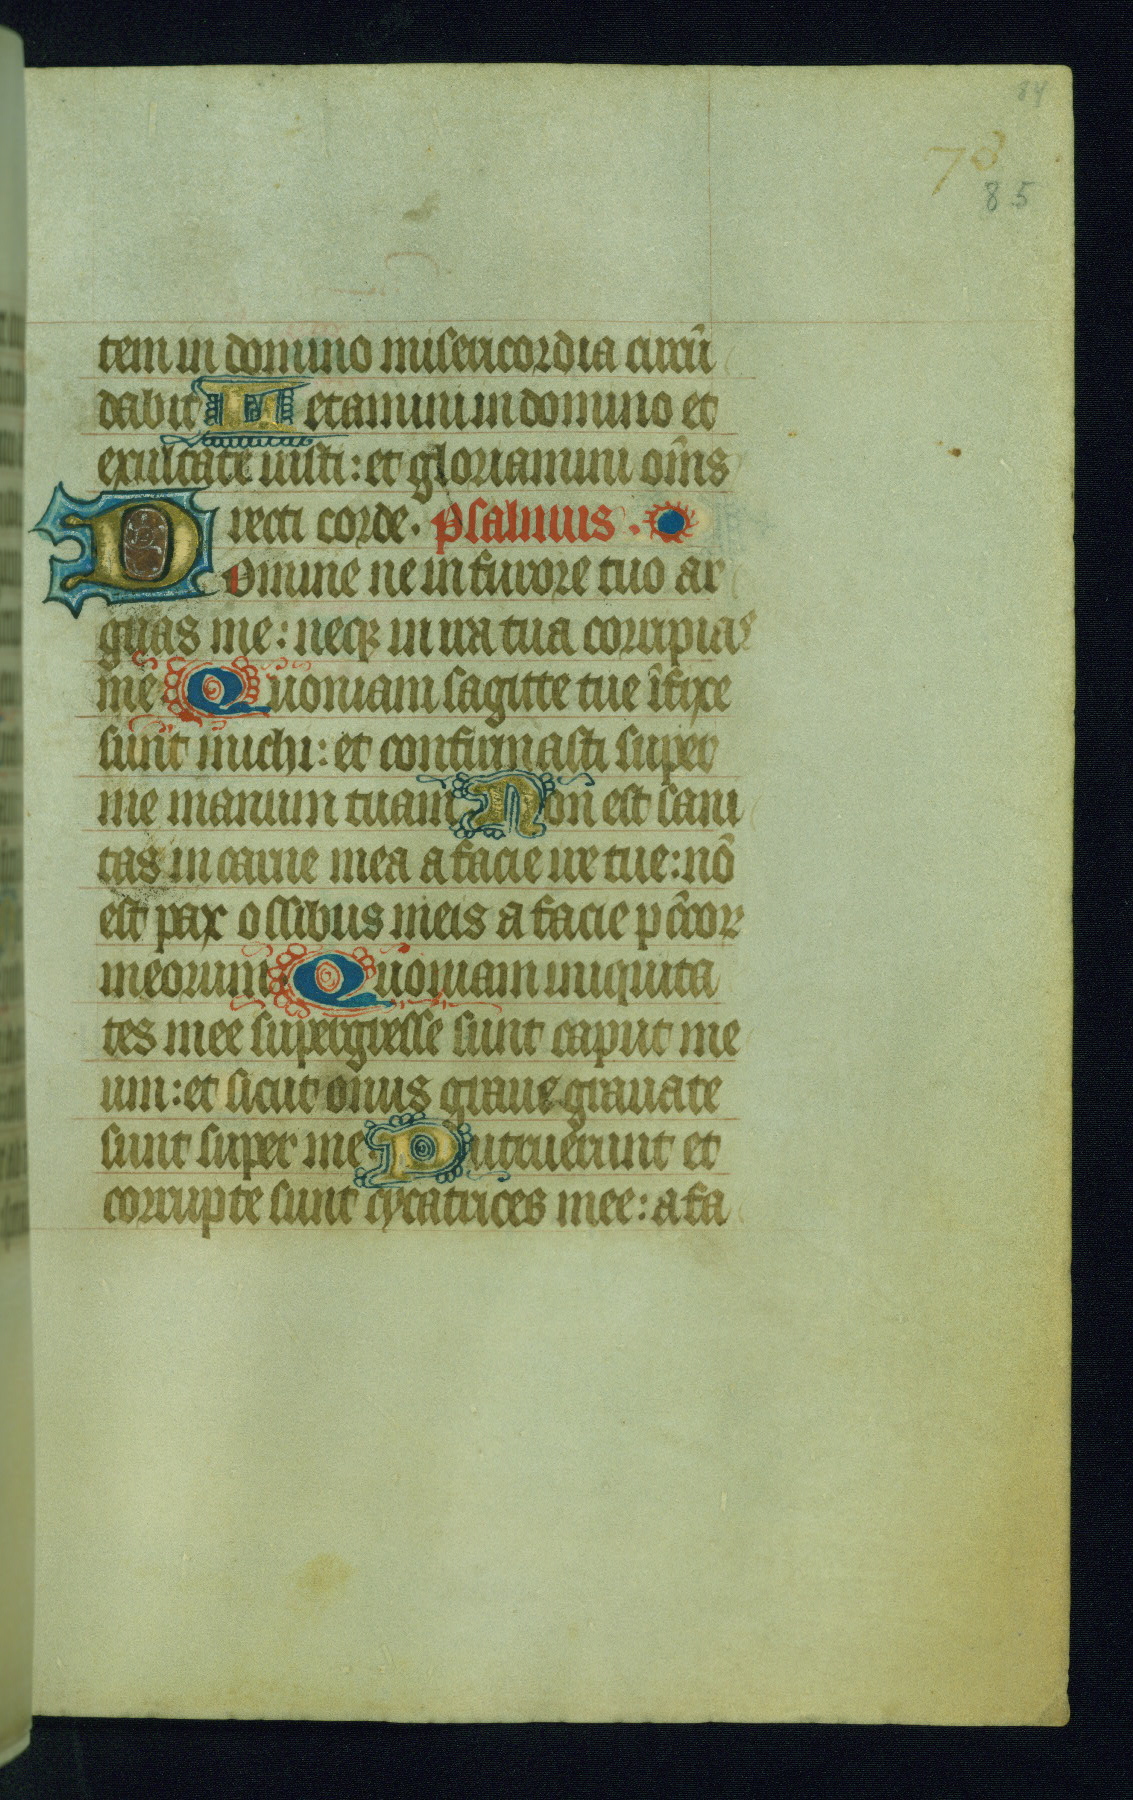 84
78
85
tem in domino misericordia circū
dabit Letamini in domino et
exultate iusti: et gloriamini om̄s
recti corde. psalmus.
Domine ne in furore tuo ar
guas me: neqꝫ in ira tua corripias
me Quoniam sagitte tue īfixe
sunt michi: et confirmasti super
me manum tuam Non est sani
tas in carne mea a facie ire tue: nō
est pax ossibus meis a facie pc̄cor
meorum Quoniam iniquita
tes mee supergresse sunt caput me
um: et sicut onus graue grauate
sunt super me Putruerunt et
corrupte sunt cycatrices mee: a fa